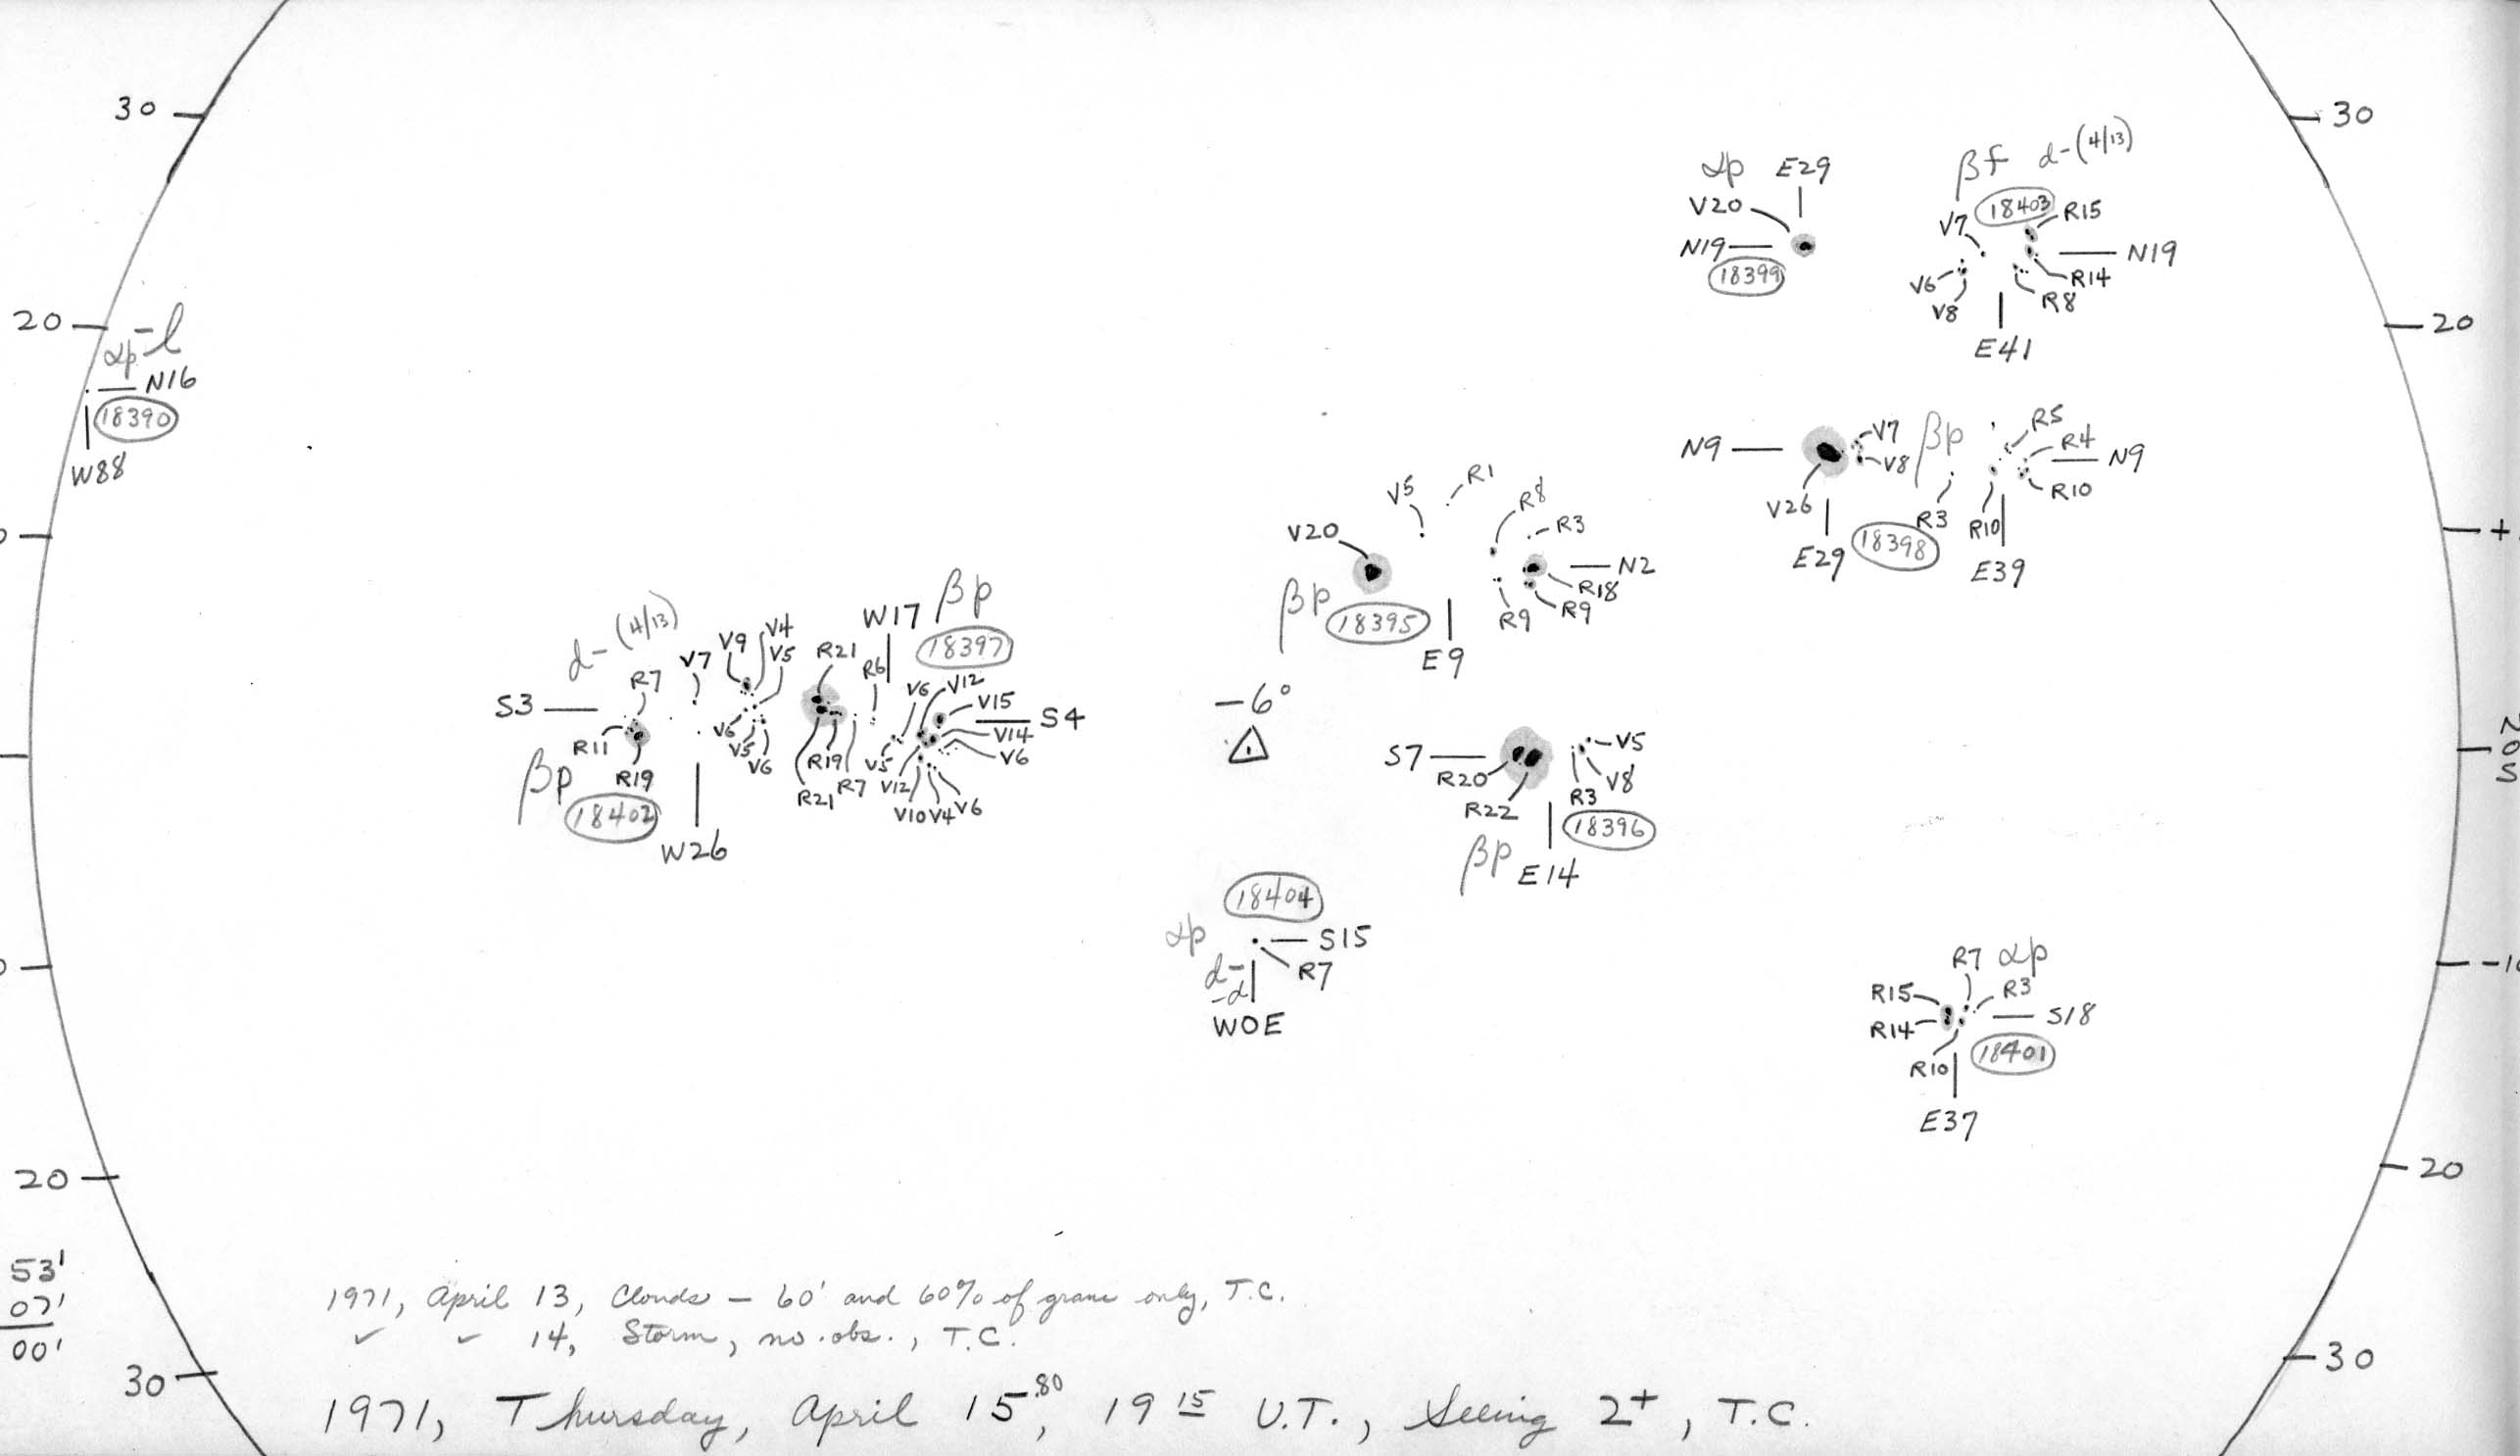 30
30
αp E29
βf d-(4/13)
V20
18403
R15
V7
N19
N19
18399
R14
V6
R8
V8
E41
20
20
αp -l
N16
18390
W88
R5
V7
βp
R4
N9
N9
V8
R10
V26
R3
R10
18398
E29
E39
+
R1
V5
R8
V20
R3
N2
R18
βp
18395
R9
R9
E9
W17 βp
d-(4/13)
18397
V9
V4
V7
V5
R21
R6
R7
V6
V12
V15
S3
S4
V14
V6
R11
V6
V5
V6
R19
V5
βp
R19
R21
R7
V12
V10
V4
V6
18402
W26
-6°
N
0
S
S7
V5
R20
V8
R3
R22
18396
βp
E14
18404
αp
S15
d-
R7
-d
W0E
R7 αp
R15
R3
R14
S18
18401
R10
E37
20
20
53'
07'
00'
1971, April 13, Clouds — 60' and 60% of grain only, T.C.
✓ ✓ 14, Storm, no obs., T.C.
30
30
1971, Thursday, April 15.80, 19 15 U.T., Seeing 2+, T.C.